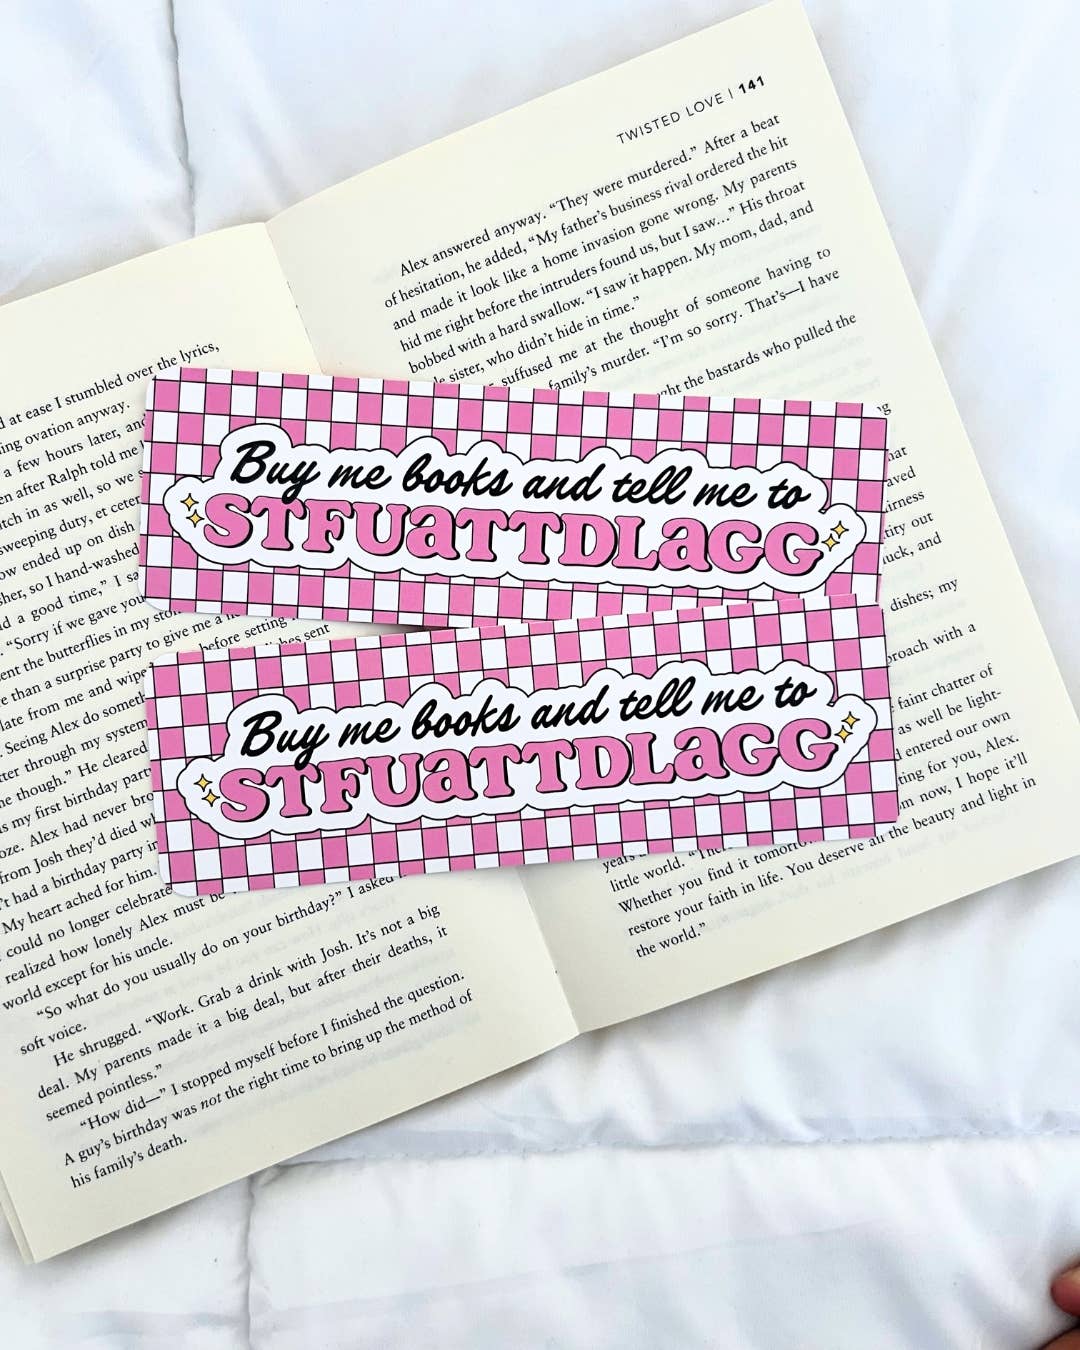 TWISTED LOVE | 141
Alex answered anyway. “They were murdered.” After a beat
of hesitation, he added, “My father’s business rival ordered the hit
and made it look like a home invasion gone wrong. My parents
hid me right before the intruders found us, but I saw…” His throat
bobbed with a hard swallow. “I saw it happen. My mom, dad, and
sister, who didn’t hide in time.”
suffused me at the thought of someone having to
family’s murder. “I’m so sorry. That’s—I have
the bastards who pulled the
Buy me books and tell me to
STFUaTTDLaGG
Buy me books and tell me to
STFUaTTDLaGG
out
and
dishes; my
with a
faint chatter of
as well be light-
entered our own
for you, Alex.
now, I hope it’ll
years
little world.
Whether you find it You deserve all the beauty and light in
restore your faith in life.
the world.”
at ease I stumbled over the lyrics,
ovation anyway.
a few hours later, and
after Ralph told me
in as well, so we
sweeping duty, et
ended up on dish
so I hand-washed
a good time,” I
“Sorry if we gave you
the butterflies in my
than a surprise party to give me a
before setting
from me and
sent
Seeing Alex do
through my system
though.” He cleared
my first birthday party
Alex had never
from Josh they’d died
had a birthday party in
My heart ached for him.
could no longer celebrate
realized how lonely Alex must
world except for his uncle.
“So what do you usually do on your birthday?” I asked
soft voice.
He shrugged. “Work. Grab a drink with Josh. It’s not a big
deal. My parents made it a big deal, but after their deaths, it
seemed pointless.”
“How did—” I stopped myself before I finished the question.
A guy’s birthday was not the right time to bring up the method of
his family’s death.